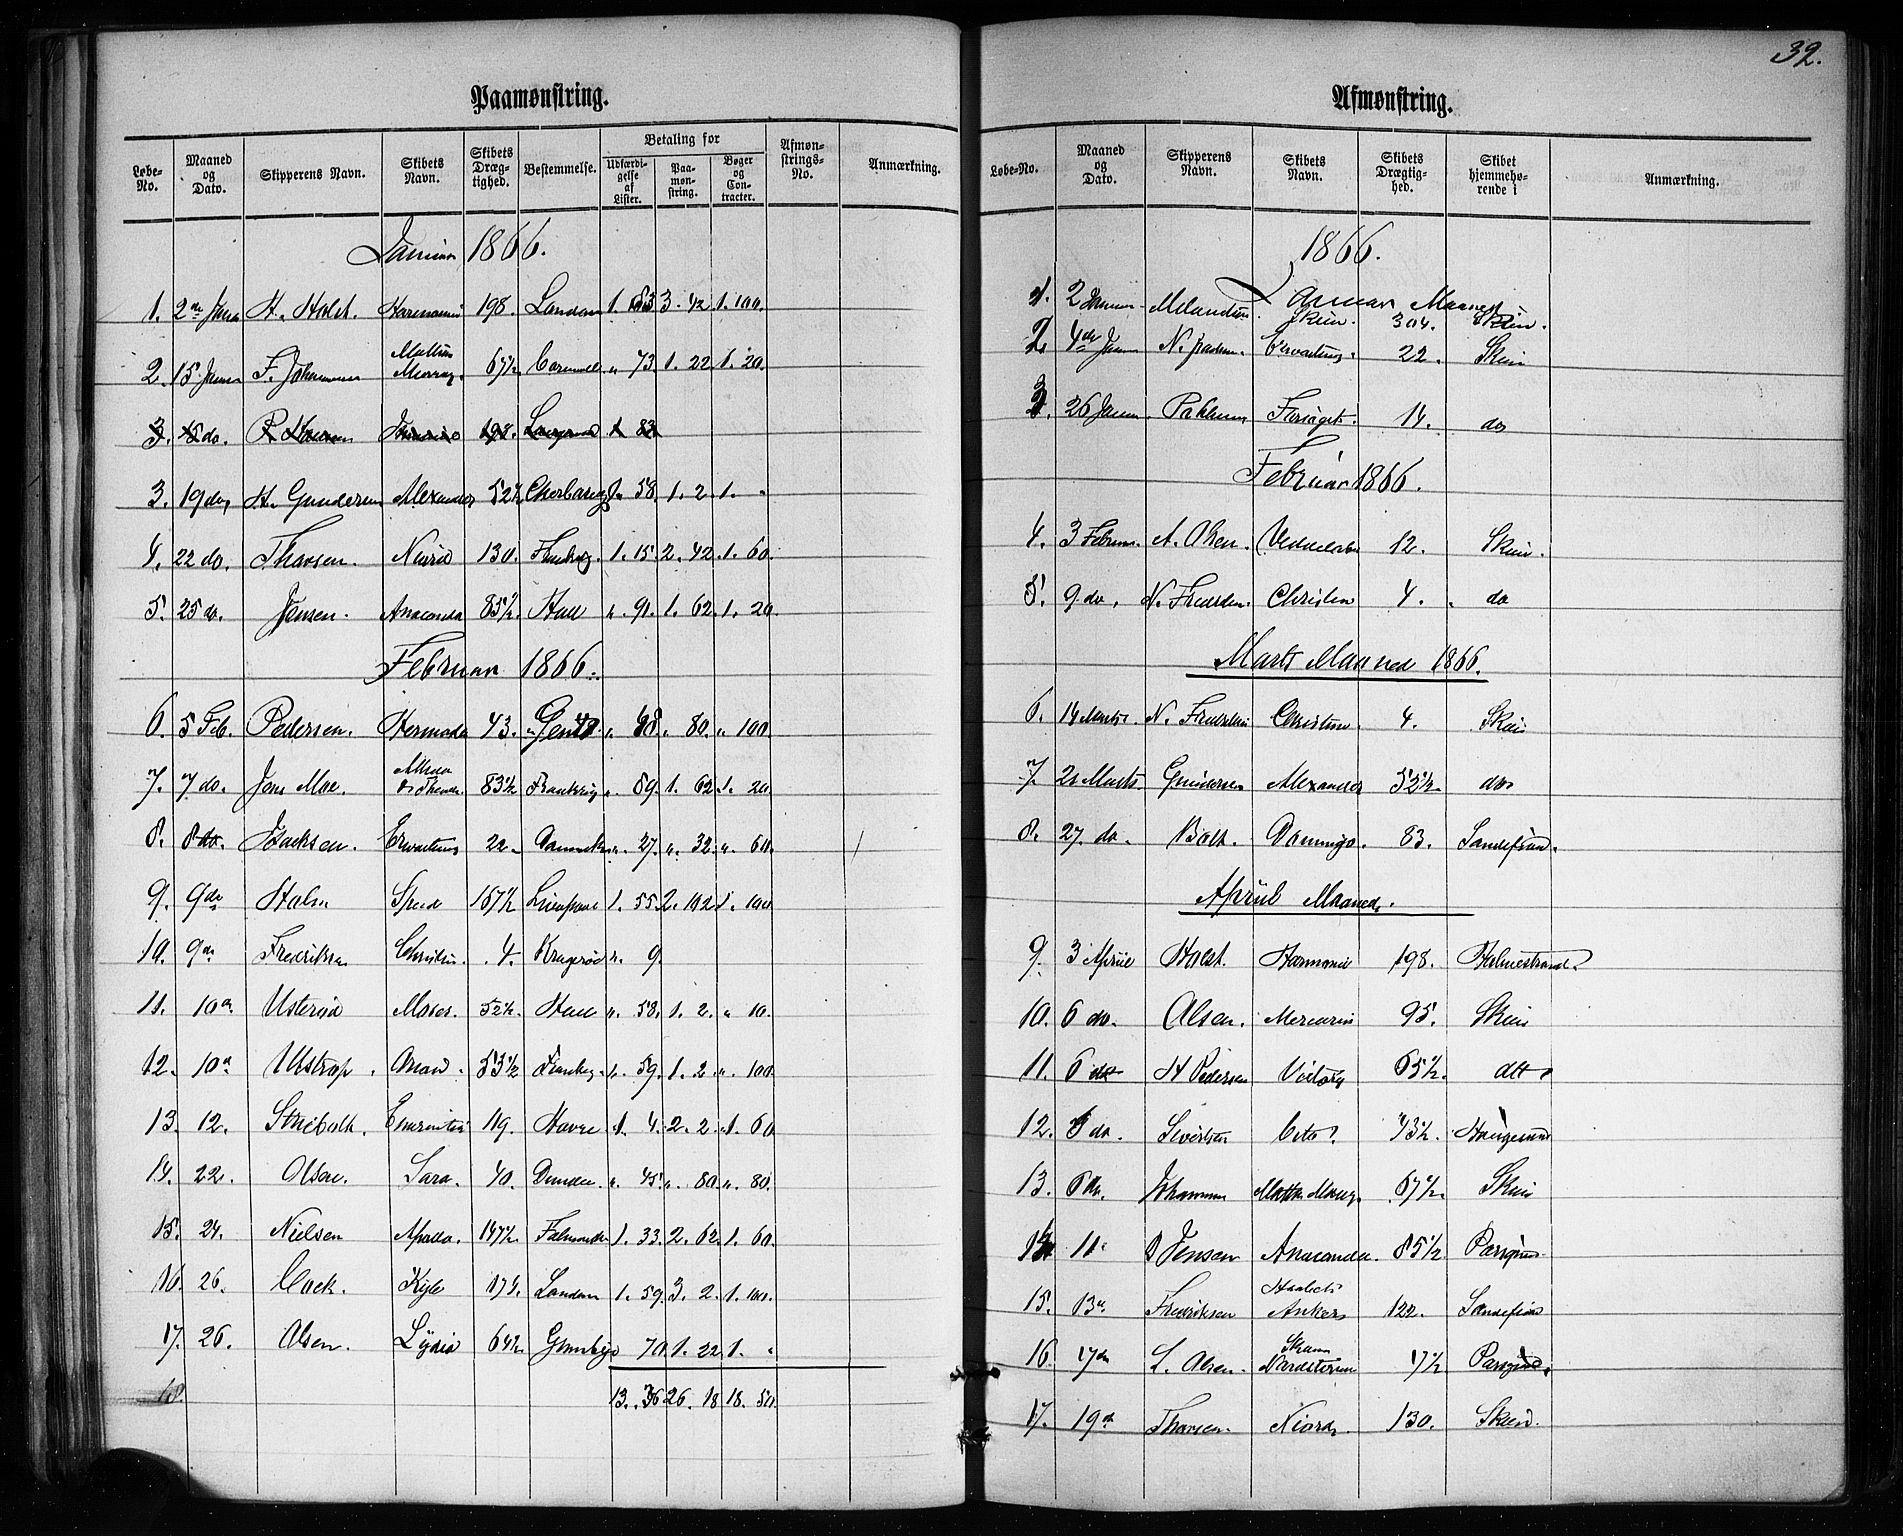 32.
Paamønstring.
Løbe-No. Maaned og Dato. Skipperens Navn. Skibets Navn. Skibets Drægtighed. Bestemmelse. Betaling for Udfærdigelse af Lister. Paamønstring. Bøger og Contracter. Afmønstrings-No. Anmærkning.
Januar 1866.
1. 2den Janu H. Holst. Harmonie 198. London 1. 3. 42 1. 100.
2. 15 Janu F. Johannesen Mathias 67½ „ 73. 1. 22 1. 20.
3. 15 do. 198. 1 83
3. 19 do, H. Gundersen Alexander 52½ Cherbourg 58. 1. 2. 1. „
4. 22 do. Thorsen. Niord 130. 1. 15 2. 42. 1. 60
5. 25 do. Jensen. Anaconda 85½. Hull „ 91. 1. 62. 1. 20
Februar 1866.
6. 5 Feb. Pedersen. Hermoda 43. Gent „ 48 „ 80. „ 100
7. 7 do. Jens Moe. 83½ Frankrig „ 89. 1. 62 1. 20
8. 8 do. Isacksen. Erwartung 22. Danmark „ 27. „ 32. „ 60
9. 9de Holm 167½ Liverpool 1. 55 2. 102 1. 100
10. 9de Fredriksen Christine. 4. Kragerø „ 9.
11. 10de Usterød Moses. 52½. Hull „ 58. 1. 2. „ 10.
12. 10de Ustrup. 53½ „ 59. 1. 2. „ 100
13. 12. Striboldt. 119. Havre 1. 4. 2. 2. 1. 60
14. 22. Olsen. Sara. 40. Dundee „ 45. „ 80. „ 80.
15. 24. Nielsen Apollo. 147½. Falmouth 1. 33. 2. 62. 1. 60.
16. 26. Cock. 174. London 1. 59. 3. 2. 1. 100.
17. 26. Olsen. Lydia 64½ Grimsby 70. 1. 22. 1. „
18. 13. 36 26. 18 18. 50
Afmønstring.
Løbe-No. Maaned og Dato. Skipperens Navn. Skibets Navn. Skibets Drægtighed. Skibet hjemmehørende i Anmærkning.
1866.
Januar Maaned
1. 2 Januar Skien. 304. Skien.
2. 4de Janu Erwartung. 22. Skien
3. 26 Janu Forsøget. 14. do
Februar 1866.
4. 3 Februar A. Olsen. 12. Skien.
5. 9 do. N. Fredriksen. Christen 4. do
Marts Maaned 1866.
6. 14 Marts. N. Fredriksen Christine. 4. Skien
7. 21 Marts. Gundersen Alexander 52½. do
8. 27 do. Bolt. Domingo. 83. Sandefiord.
April Maaned.
9. 3 April Holst. Harmonie 198. Holmestrand.
10. 6 do. Olsen. Mercurius 95. Skien
11. 6 do H Pedersen Victory 65½. dtt.
12. 6 do. Sivertsen 73½. Haugesund
13. 6 do. Johannesen 67½. Skien
14 11. Jensen Anaconda. 85½ Porsgrund
15. 13de Fredriksen Haabets Anker 122. Sandefiord
16. 17de L. Olsen. 17½ Porsgrund.
17. 19de Thorsen. Niord. 130. Skien.